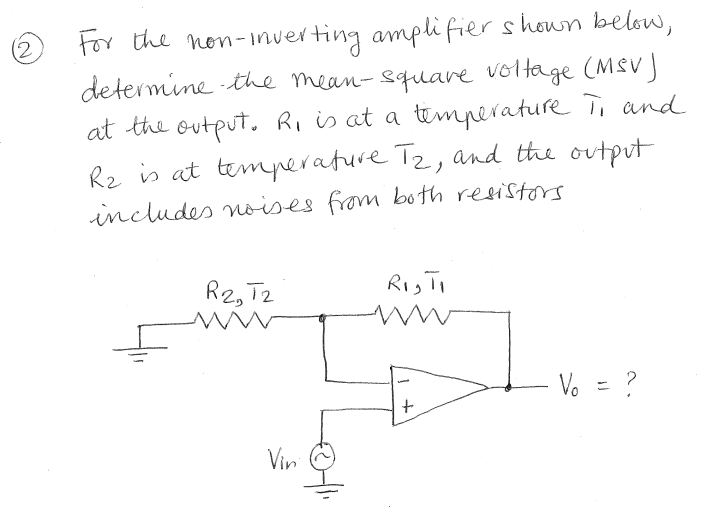 ② For the non-inverting amplifier shown below,
determine the mean-square voltage (MSV)
at the output. R1 is at a temperature T1 and
R2 is at temperature T2, and the output
includes noises from both resistors
R2, T2
R1, T1
-
+
Vo = ?
Vin